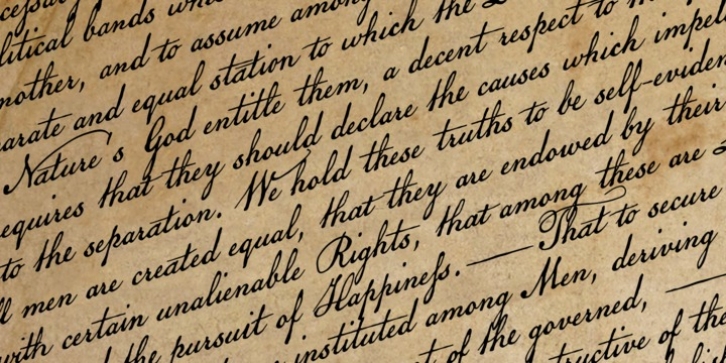 litical bands
nother, and to assume among
arate and equal station to which the
Nature's God entitle them, a decent respect to
equires that they should declare the causes which impel
to the separation. We hold these truths to be self-eviden
ll men are created equal, that they are endowed by their
with certain unalienable Rights, that among these are
the pursuit of Happineſs. — That to secure
instituted among Men, deriving
of the governed, —
tructive of the